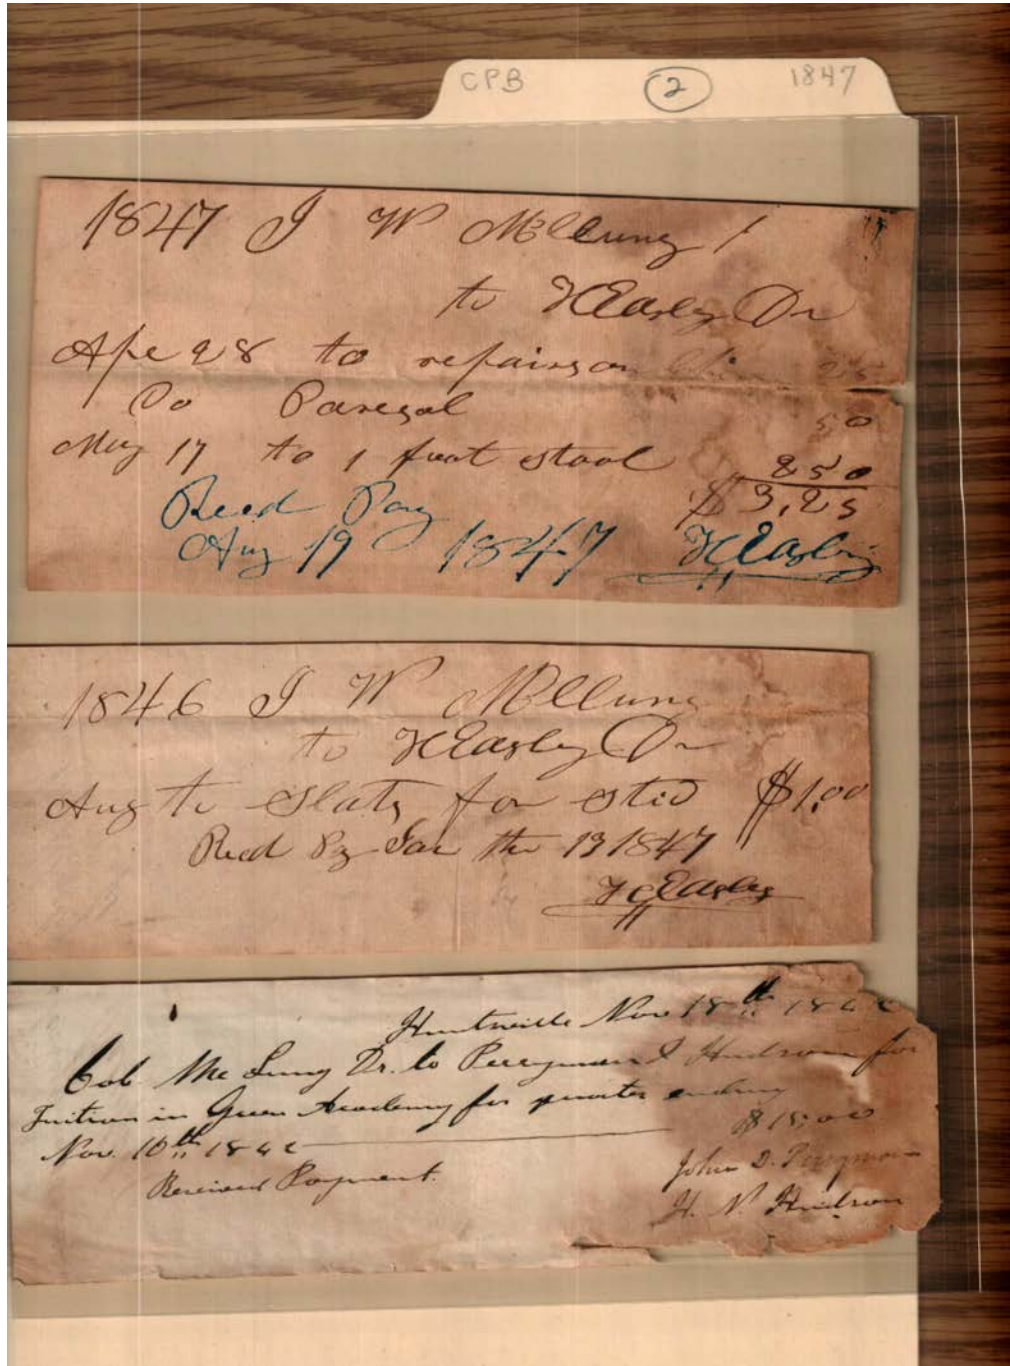 CPB 2 1847
1847 J W McClung
to H C Easley Dr
Apl 28 to repairs on 25
Do Paresol 50
May 17 to 1 foot stool 2 50
$3,25
Recd Pay
Aug 19 1847 H C Easley
1846 J W McClung
to H C Easley Dr
Aug to Slats for stid $1.00
Recd Py Jan the 13 1847
H C Easley
Huntsville Nov 18th
Col. McLung Dr. to Perryman & Hudson for
Tuition in Green Academy for quarter ending
Nov. 10th $15.00
Received Payment. John D. Perryman
H. N. Hudson